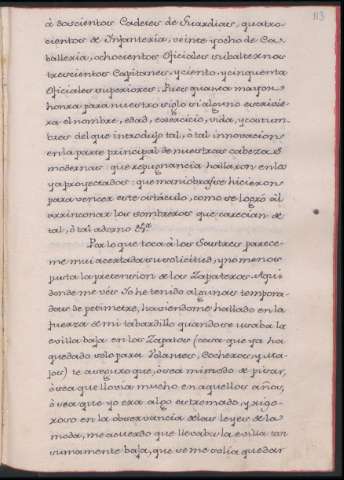 113
à doscientos Cadetes de Guardias, quatro-
cientos de Infanteria, veinte y ocho de Ca-
balleria, ochocientos Oficiales subalternos
trescientos Capitanes, y ciento, y cinquenta
Oficiales superiores: Pues quanta mayor
honra para nuestro siglo si alguno escribiese
el nombre, edad, exercicio, vida, y costum-
bres del que introdujo tal, ò tal innovacion
en la parte principal de nuestras cabezas
modernas: que repugnancia hallaron en los
ya proyectados: que maniobras se hicieron
para vencer este ostáculo, como se logró al
arrinconar los sombreros que carecian de
tal, ò tal adorno &ª
Por lo que toca à los Sastres parece-
me mui acertada su solicitud, y no menos
justa la pretension de los Zapateros. Aqui
donde me véis Yo he tenido algunas tempora-
das de petimetre, haviendome hallado en la
fuerza de mi tabardillo quando se usaba la
evilla baja en los Zapatos (cosa que ya ha
quedado solo para Volantes, Cocheros, y Ma-
jos) te aseguro que, ò sea mi modo de pisar,
ò sea que llovia mucho en aquellos años,
ò sea que yo era algo extremado, y rigo-
roso en la observancia de las leyes de la
moda, me acuerdo que llevaba la evilla tan
sumamente baja, que se me solía quedar